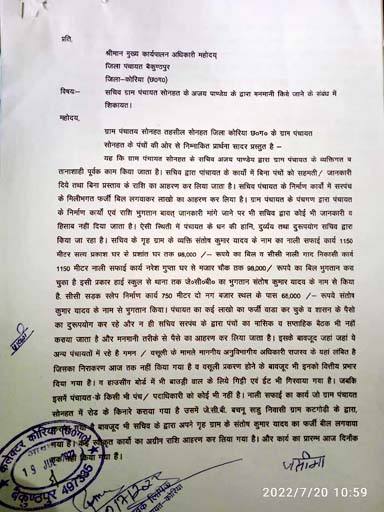 प्रति,
श्रीमान मुख्य कार्यपालन अधिकारी महोदय
जिला पंचायत बैकुण्ठपुर
जिला–कोरिया (छ०ग०)
विषय:– सचिव ग्राम पंचायत सोनहत के अजय पाण्डेय के द्वारा मनमानी किये जाने के संबंध में
शिकायत।
महोदय,
ग्राम पंचातय सोनहत तहसील सोनहत जिला कोरिया छ०ग० के ग्राम पंचायत
सोनहत के पंचों की ओर से निम्नांकित प्रार्थना सादर प्रस्तुत है –
यह कि ग्राम पंचायत सोनहत के सचिव अजय पाण्डेय द्वारा ग्राम पंचायत के व्यक्तिगत व
तानाशाही पूर्वक काम किया जाता है। सचिव द्वारा पांचायत के कार्यो में बिना पंचों को सहमती/ जानकारी
दिये तथा बिना प्रस्ताव के राशि का आहरण कर लिया जाता है। सचिव पंचायत के निर्माण कार्यो में सरपंच
के मिलीभगत फर्जी बिल लगवाकर लाखो का आहरण कर लिया है। ग्राम पंचायत के पंचगण द्वारा पंचायत
के निर्माण कार्यो एवं राशि भुगतान बावत् जानकारी मांगे जाने पर भी सचिव द्वारा कोई भी जानकारी व
हिसाब नहीं दिया जाता है। ऐसी स्थिती में पंचायत के धन की हानि, दुर्व्यय तथा दुरूपयोग सचिव द्वारा
किया जा रहा है। सचिव के गृह ग्राम के व्यक्ति संतोष कुमार यादव के नाम का नाली सफाई कार्य 1150
मीटर सत्य प्रकाश घर से प्रशांत घर तक 98,000 /– रूपये का बिल व सीसी नाली गाद निकासी कार्य
1150 मीटर नाली सफाई कार्य नरेश गुप्ता घर से मजार चौक तक 98,000/ रूपये का बिल भुगतान करा
चुका है इसी प्रकार हाई स्कुल से थाना तक जे०सी०बी० का भुगतान संतोष कुमार यादव के नाम से किया
है. सीसी सड़क स्लेप निर्माण कार्य 750 मीटर दो नग बजार स्थल के पास 68,000 /– रूपये संतोष
कुमार यादव के नाम से भुगतान किया। पंचायत का कई लाखो का फर्जी वाडा कर चुके व शासन के पैसो
का दुरूपयोग कर रहे और न ही सचिव सरपंच के द्वारा पंचों का मासिक व सप्ताहिक बैठक भी नहीं
कराया जाता है और मनमानी तरीके से पैसे का आहरण कर लिया जाता है। इसके बावजूद जहां जहां ये
अन्य पंचायतों में रहे है गमन / वसूली के मामले माननीय अनुविभागीय अधिकारी राजस्व के यहां लंबित है
जिसका निराकरण आज तक नहीं किया गया है व वसूली प्रकरण होने के बावजूद भी इनको वित्तीय प्रभार
दिया गया है। व हाउसींग बोर्ड में भी बाउड्री वाल के लिये गिट्टी एवं ईट भी गिरवाया गया है। जबकि
इसमें पंचायत के किसी भी पंच/ पदाधिकारी को कोई भी नहीं है। नाली सफाई का कार्य जो ग्राम पंचायत
सोनहत में रोड के किनारे कराया गया है उसमें जे.सी.बी. बचनू साहु निवासी ग्राम कटगोड़ी के द्वारा,
गया है बावजूद भी सचिव के द्वारा अपने गृह ग्राम के संतोष कुमार यादव का फर्जी बील लगवाया
गया है। कई स्वीकृत कार्यो का अग्रीम राशि आहरण कर लिया गया है। और कार्य का प्रारम्भ आज दिनॉक
तक नहीं किया गया है।
कलेक्टर कोरिया (छ०ग०)
बैकुण्ठपुर 497335
प्रतीमा
2022/7/20 10:59